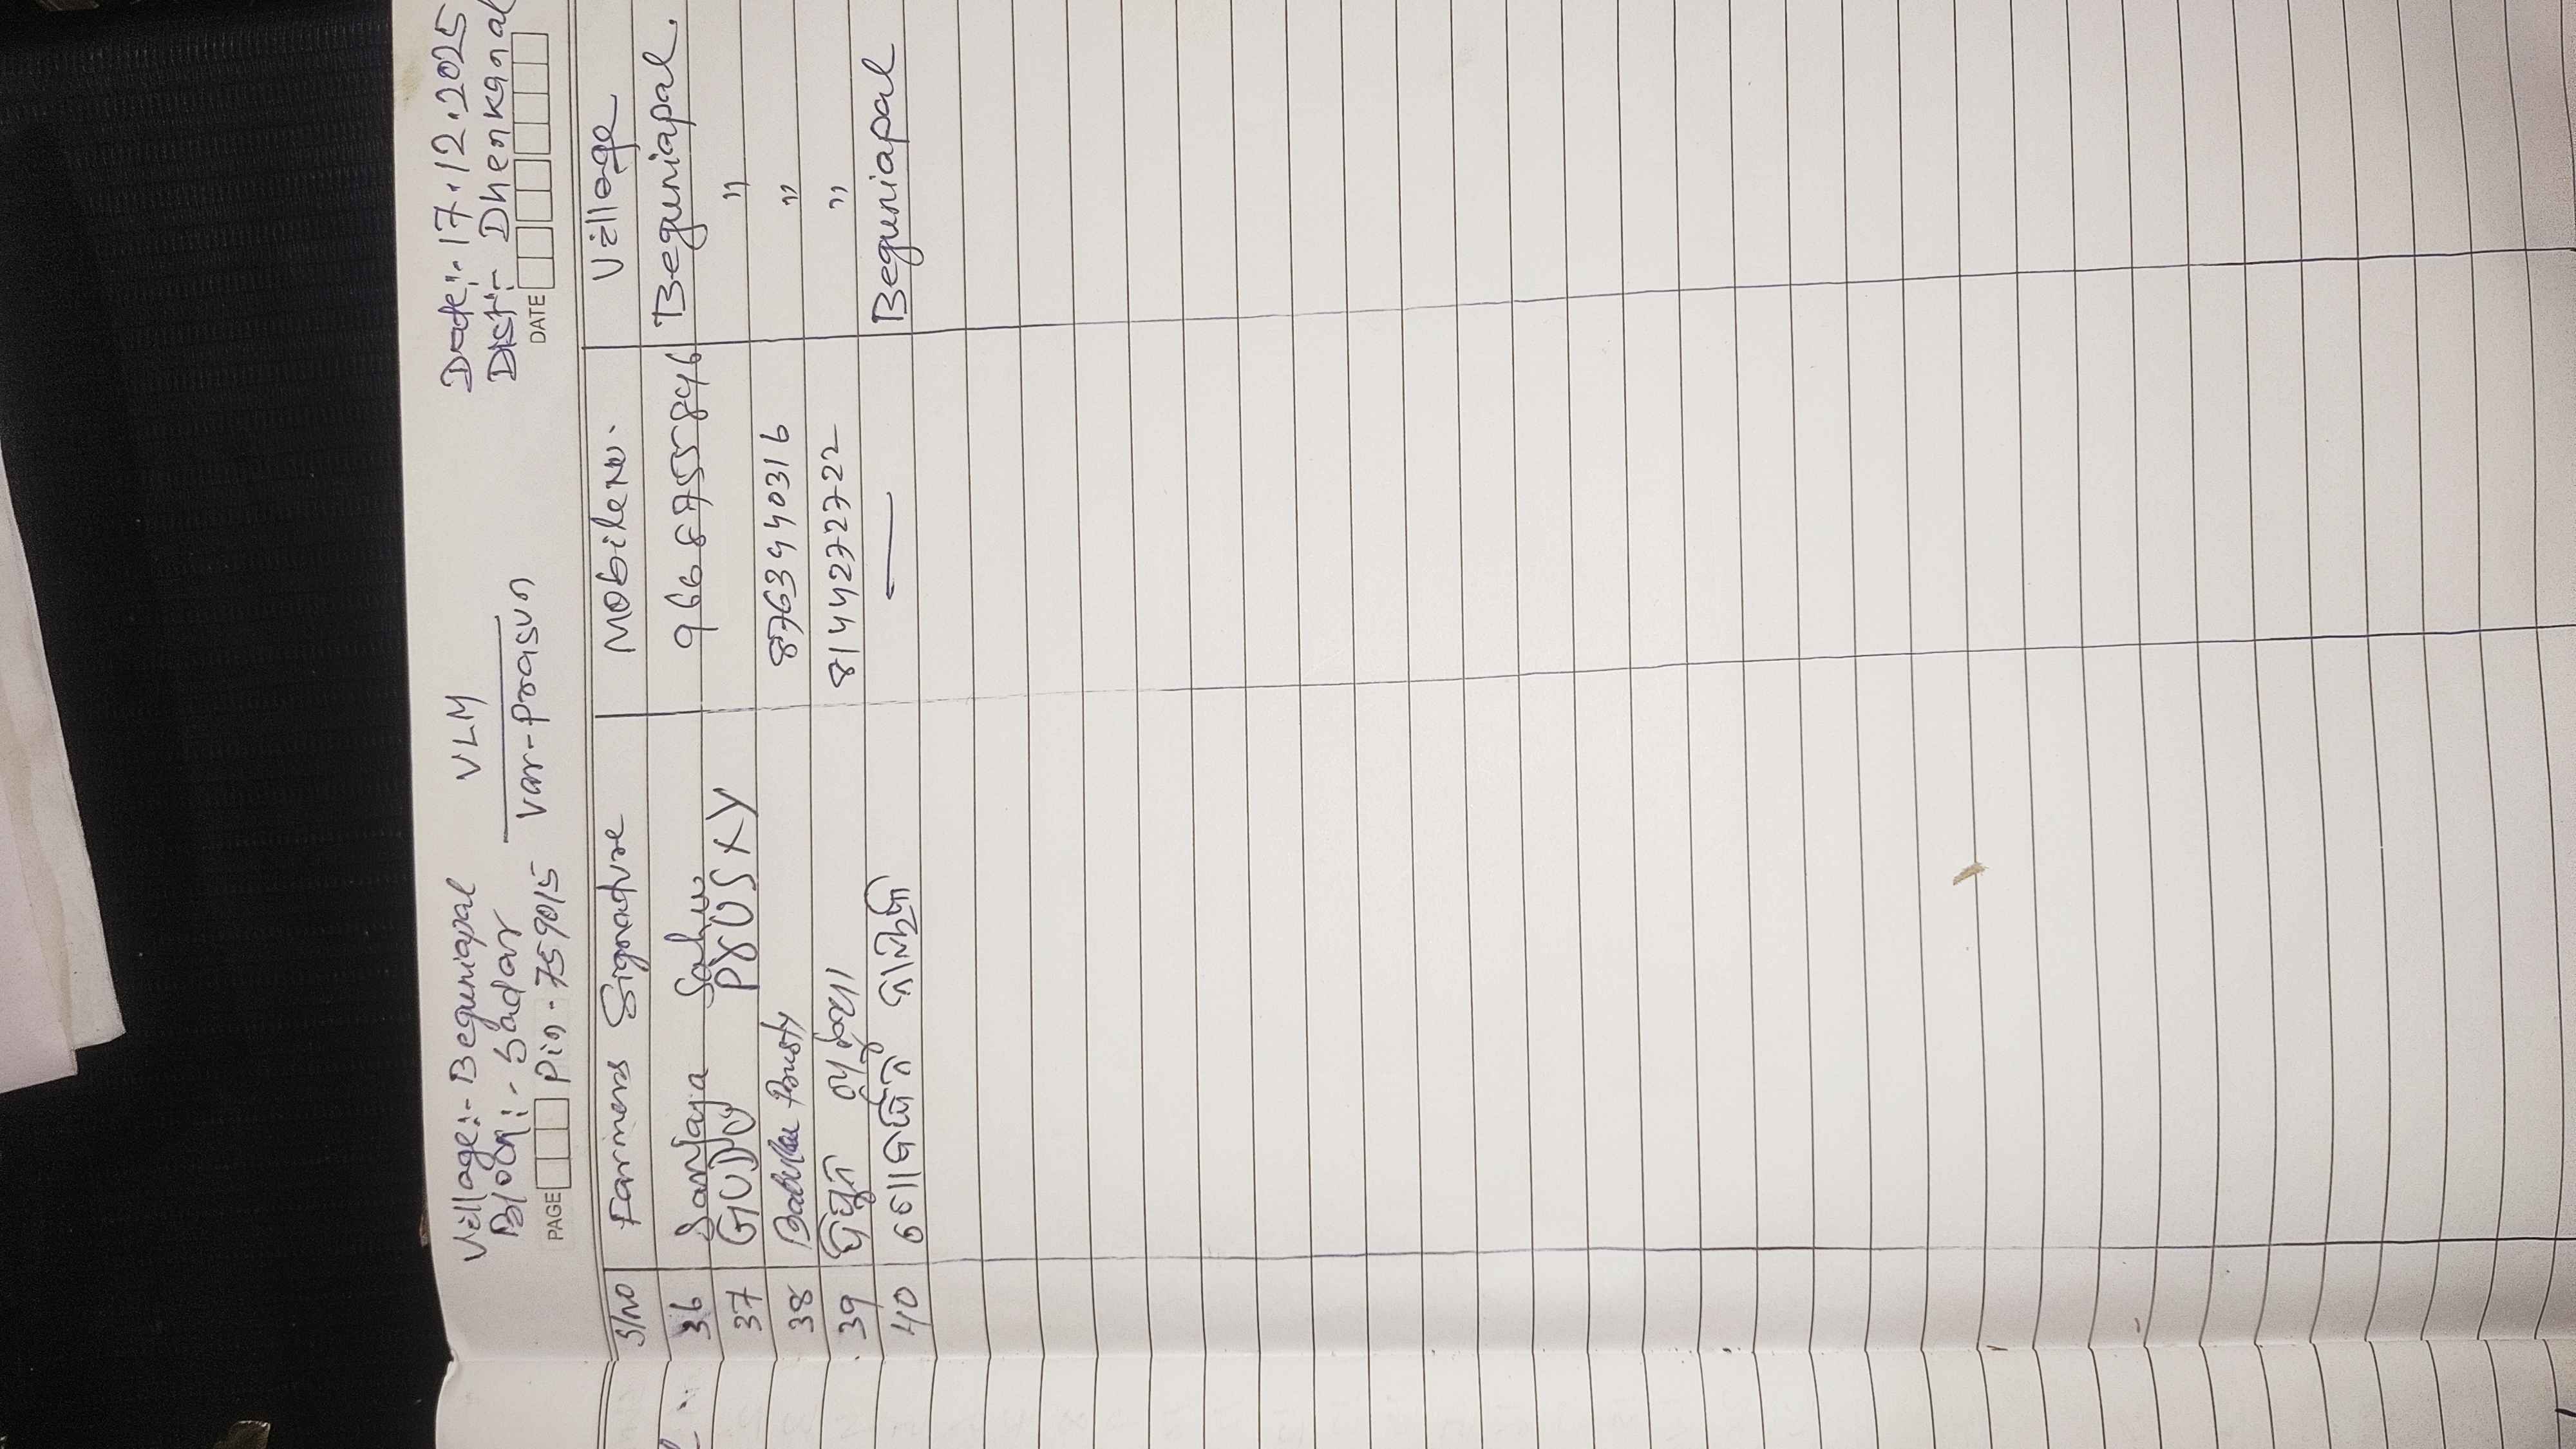 Village:- Beguniapal VLM Date:- 17.12.2025
Block:- Sadar Dist:- Dhenkanal
PAGE Pin - 759015 Var-Prasun DATE
S/No Farmers Signature Mobile No. Village
36 Sanjaya Sahu 9668755846 Beguniapal.
37 GUDU PRUSTY "
38 Babulu Prusty 8763440316 "
39 8144272722 "
40 — Beguniapal